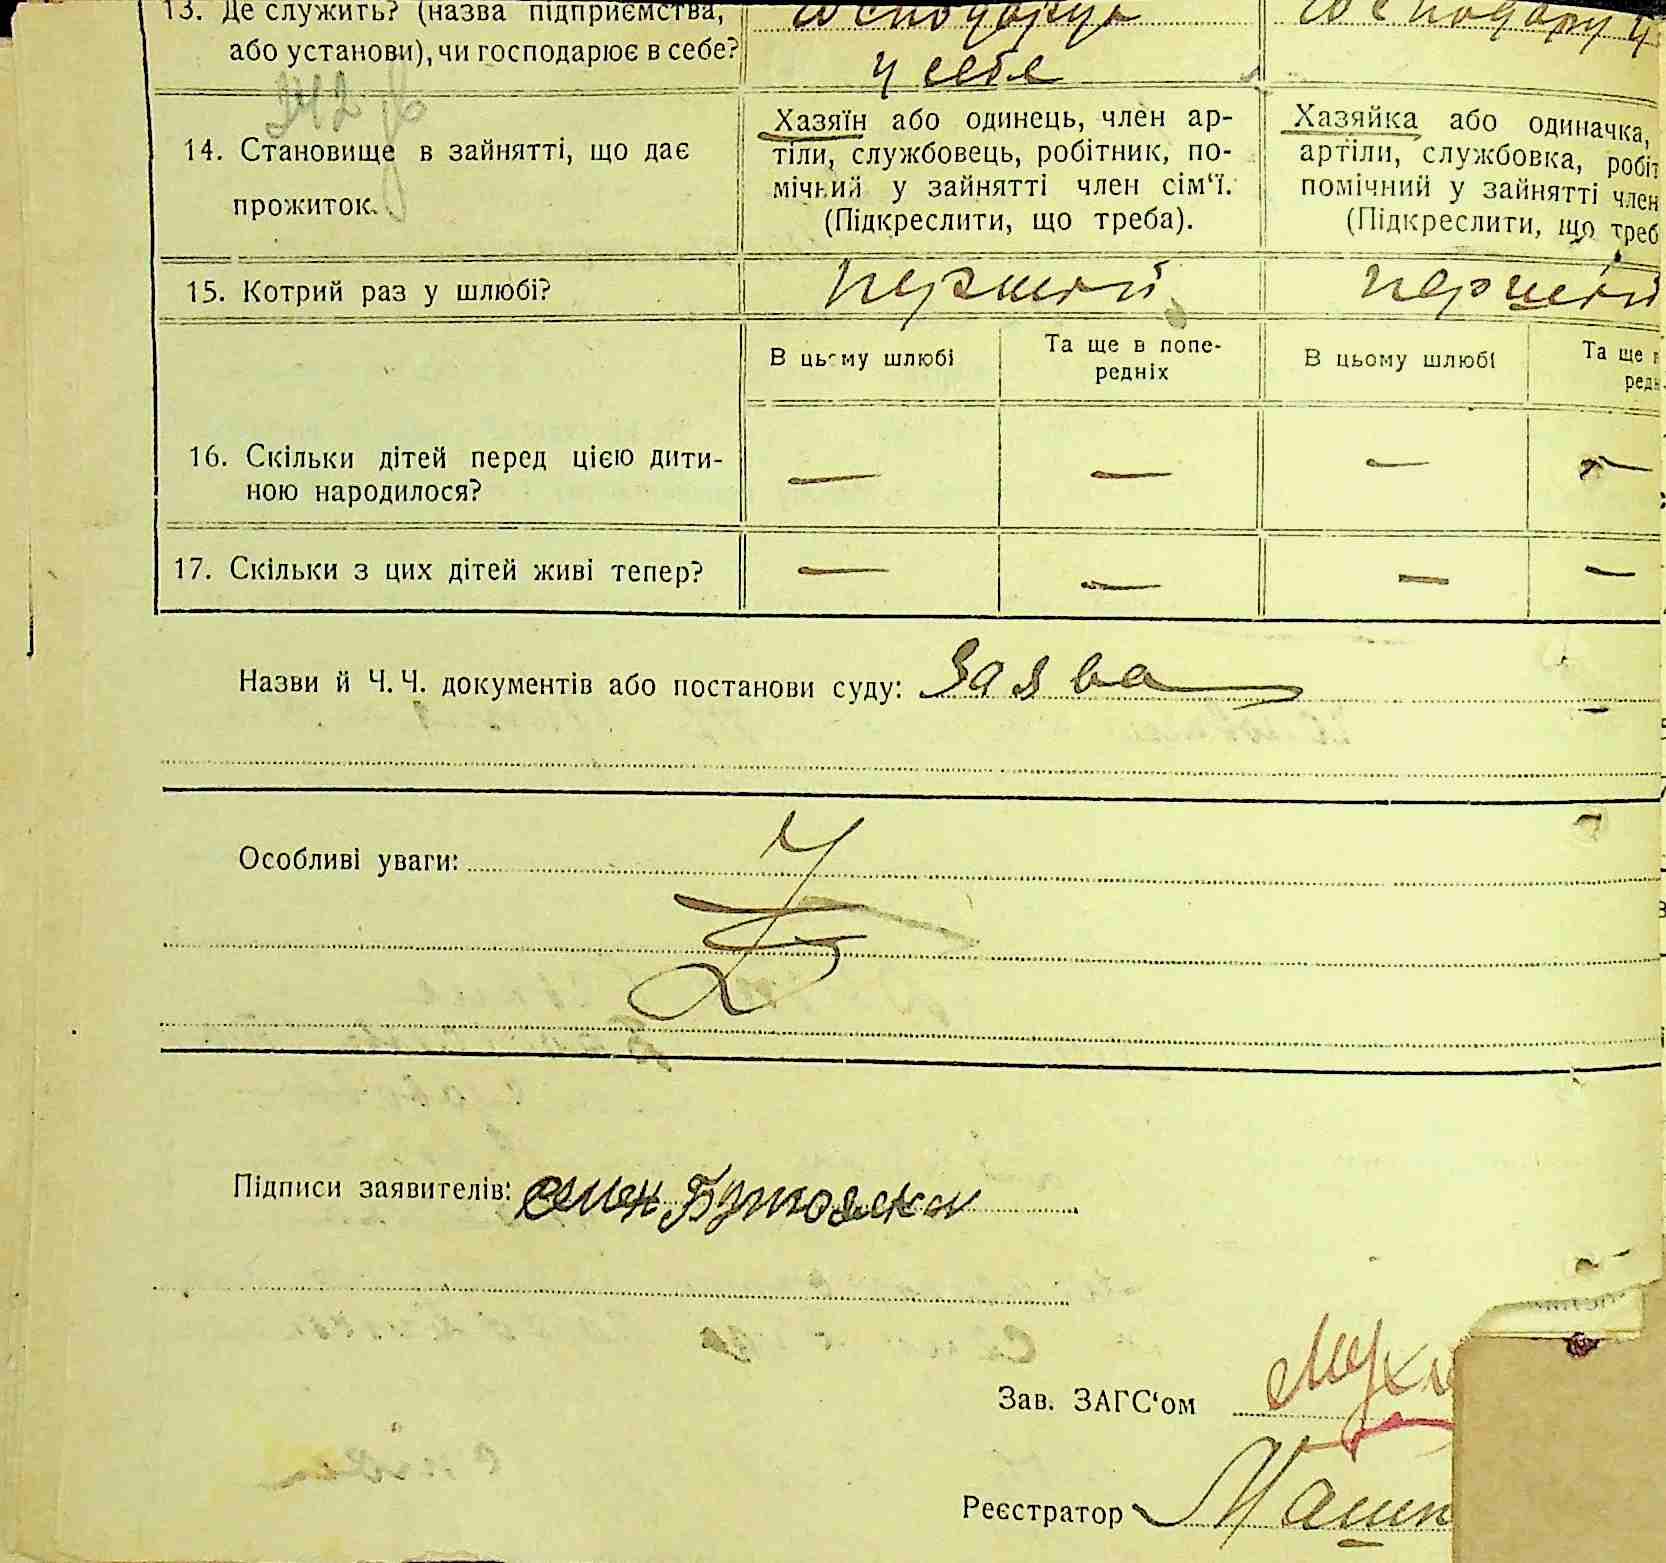 13. Де служить? (назва підприємства, господарує господарує
або установи), чи господарює в себе? у себе
14. Становище в зайнятті, що дає
прожиток.
Хазяїн або одинець, член ар-
тіли, службовець, робітник, по-
мічний у зайнятті член сім‘ї.
(Підкреслити, що треба).
Хазяйка або одиначка,
артіли, службовка, робіт
помічний у зайнятті член
(Підкреслити, що треб
15. Котрий раз у шлюбі? перший перший
В цьому шлюбі
Та ще в попе-
редніх
В цьому шлюбі
Та ще в
редн
16. Скільки дітей перед цією дити-
ною народилося? — — — —
17. Скільки з цих дітей живі тепер? — — — —
Назви й Ч. Ч. документів або постанови суду: Заява
Особливі уваги:
Підписи заявителів:
Зав. ЗАГС‘ом
Реєстратор